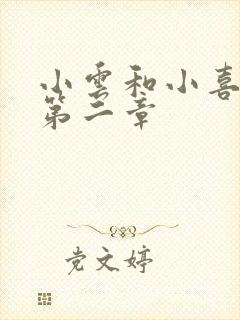 小雲和小喜
第二章
党文婷